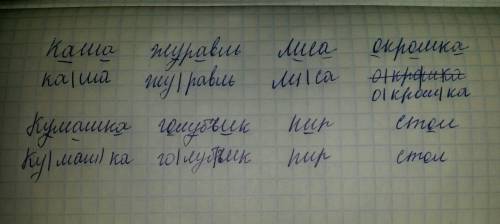 Каша журавль лиса окрошка
ка|ша жу|равль ли|са о|крошка
о|крош|ка
Кумашка голубчик пир стол
Ку|маш|ка го|лубчик пир стол